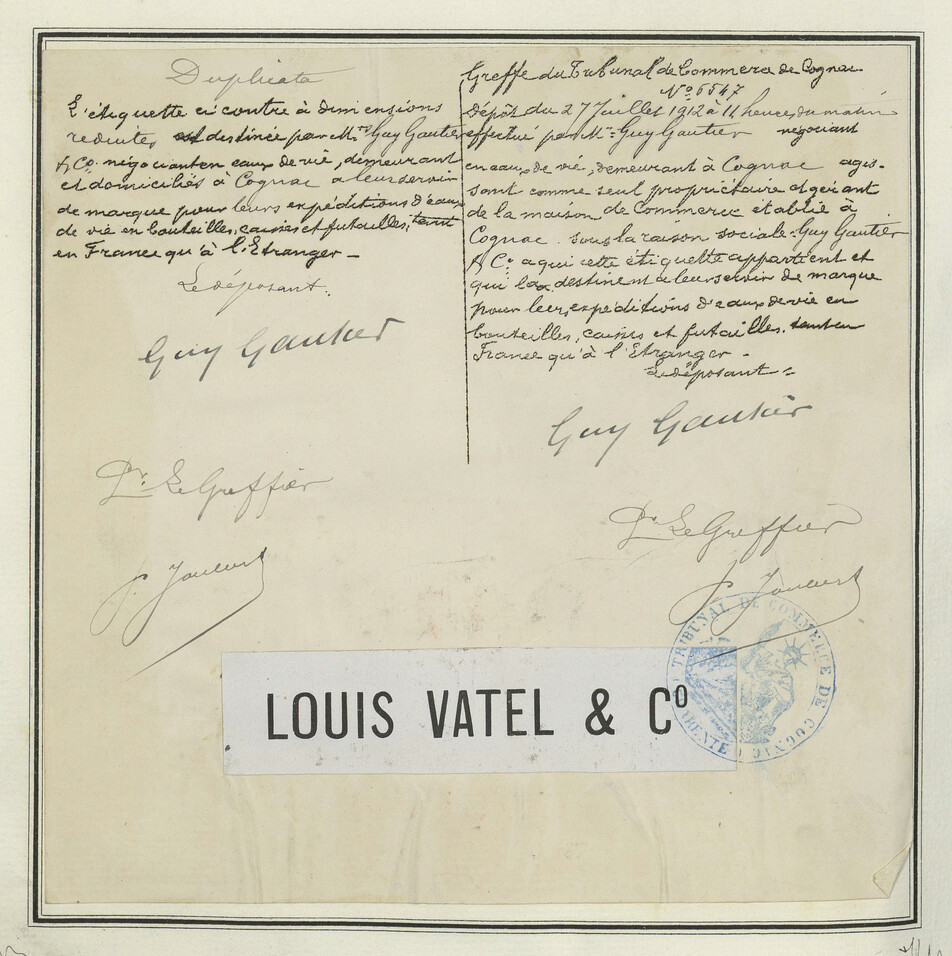 Duplicata
L'étiquette ci contre à dimensions
reduites est destinée par Mrs Guy Gautier
& Co. négociants en eaux de vie, demeurant
et domiciliés à Cognac a leur servir
de marque pour leurs expéditions d'eaux
de vie en bouteilles, caisses et futailles, tant
en France qu'à l'Etranger_
Le déposant.
Guy Gautier
Pr. Le Greffier
Greffe du Tribunal de Commerce de Cognac
No 6547
Dépôt du 27 Juillet 1912 à 11 heures du matin
effectué par Mr. Guy Gautier négociant
en eaux de vie, demeurant à Cognac agis-
sant comme seul propriétaire et gérant
de la maison de Commerce établie à
Cognac sous la raison sociale. Guy Gautier
& Co a qui cette étiquette appartient et
qui la destinent a leur servir de marque
pour leurs expéditions d'eaux de vie en
bouteilles, caisses et futailles. tant en
France qu'à l'Etranger_
Le déposant
Guy Gautier
Pr. Le Greffier
TRIBUNAL DE COMMERCE DE COGNAC
LOUIS VATEL & Co